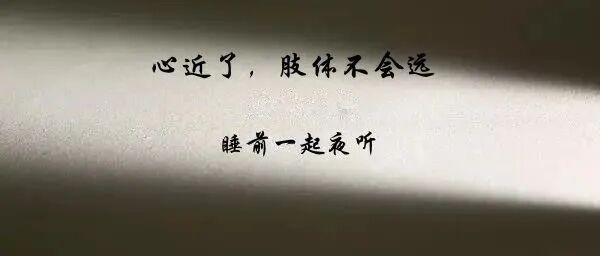 心近了，肢体不会远
睡前一起夜听